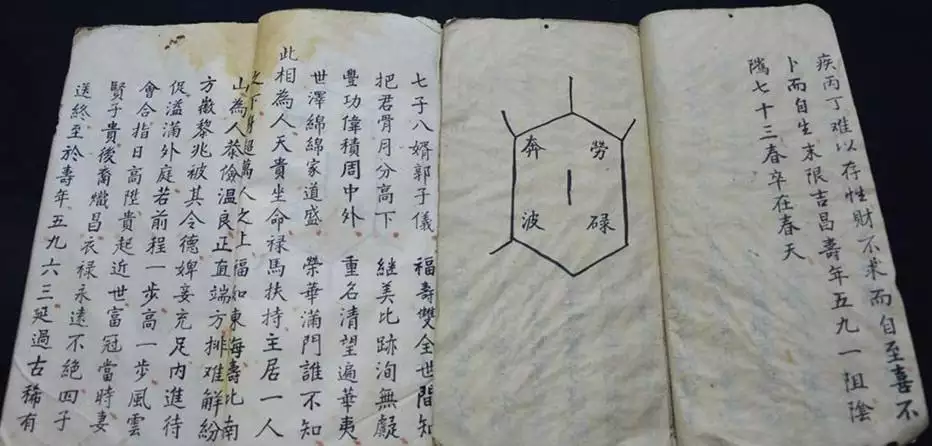 疾丙丁难以存性財不求而自至喜不
卜而自生末限吉昌壽年五九一阻陰
隲七十三春卒在春天
勞碌
奔波
七子八婿郭子儀 福壽雙全世間知
把君骨月分高下 继美比跡洵無
豐功偉積周中外 重名清望遍華夷
世澤綿綿家道盛 榮華滿門誰不知
此相為人天貴坐命禄馬扶持主居一人
之下身超萬人之上福如東海壽比南
山為人恭儉温良正直端方排难解紛
方徽黎兆被其令德婢妾充足內進待
促溢滿外庭若前程一步高一步風雲
會合指日高陞貴起近世富冠當時妻
賢子貴後裔熾昌衣禄永遠不絕四子
送終至於壽年五九六三延過古稀有